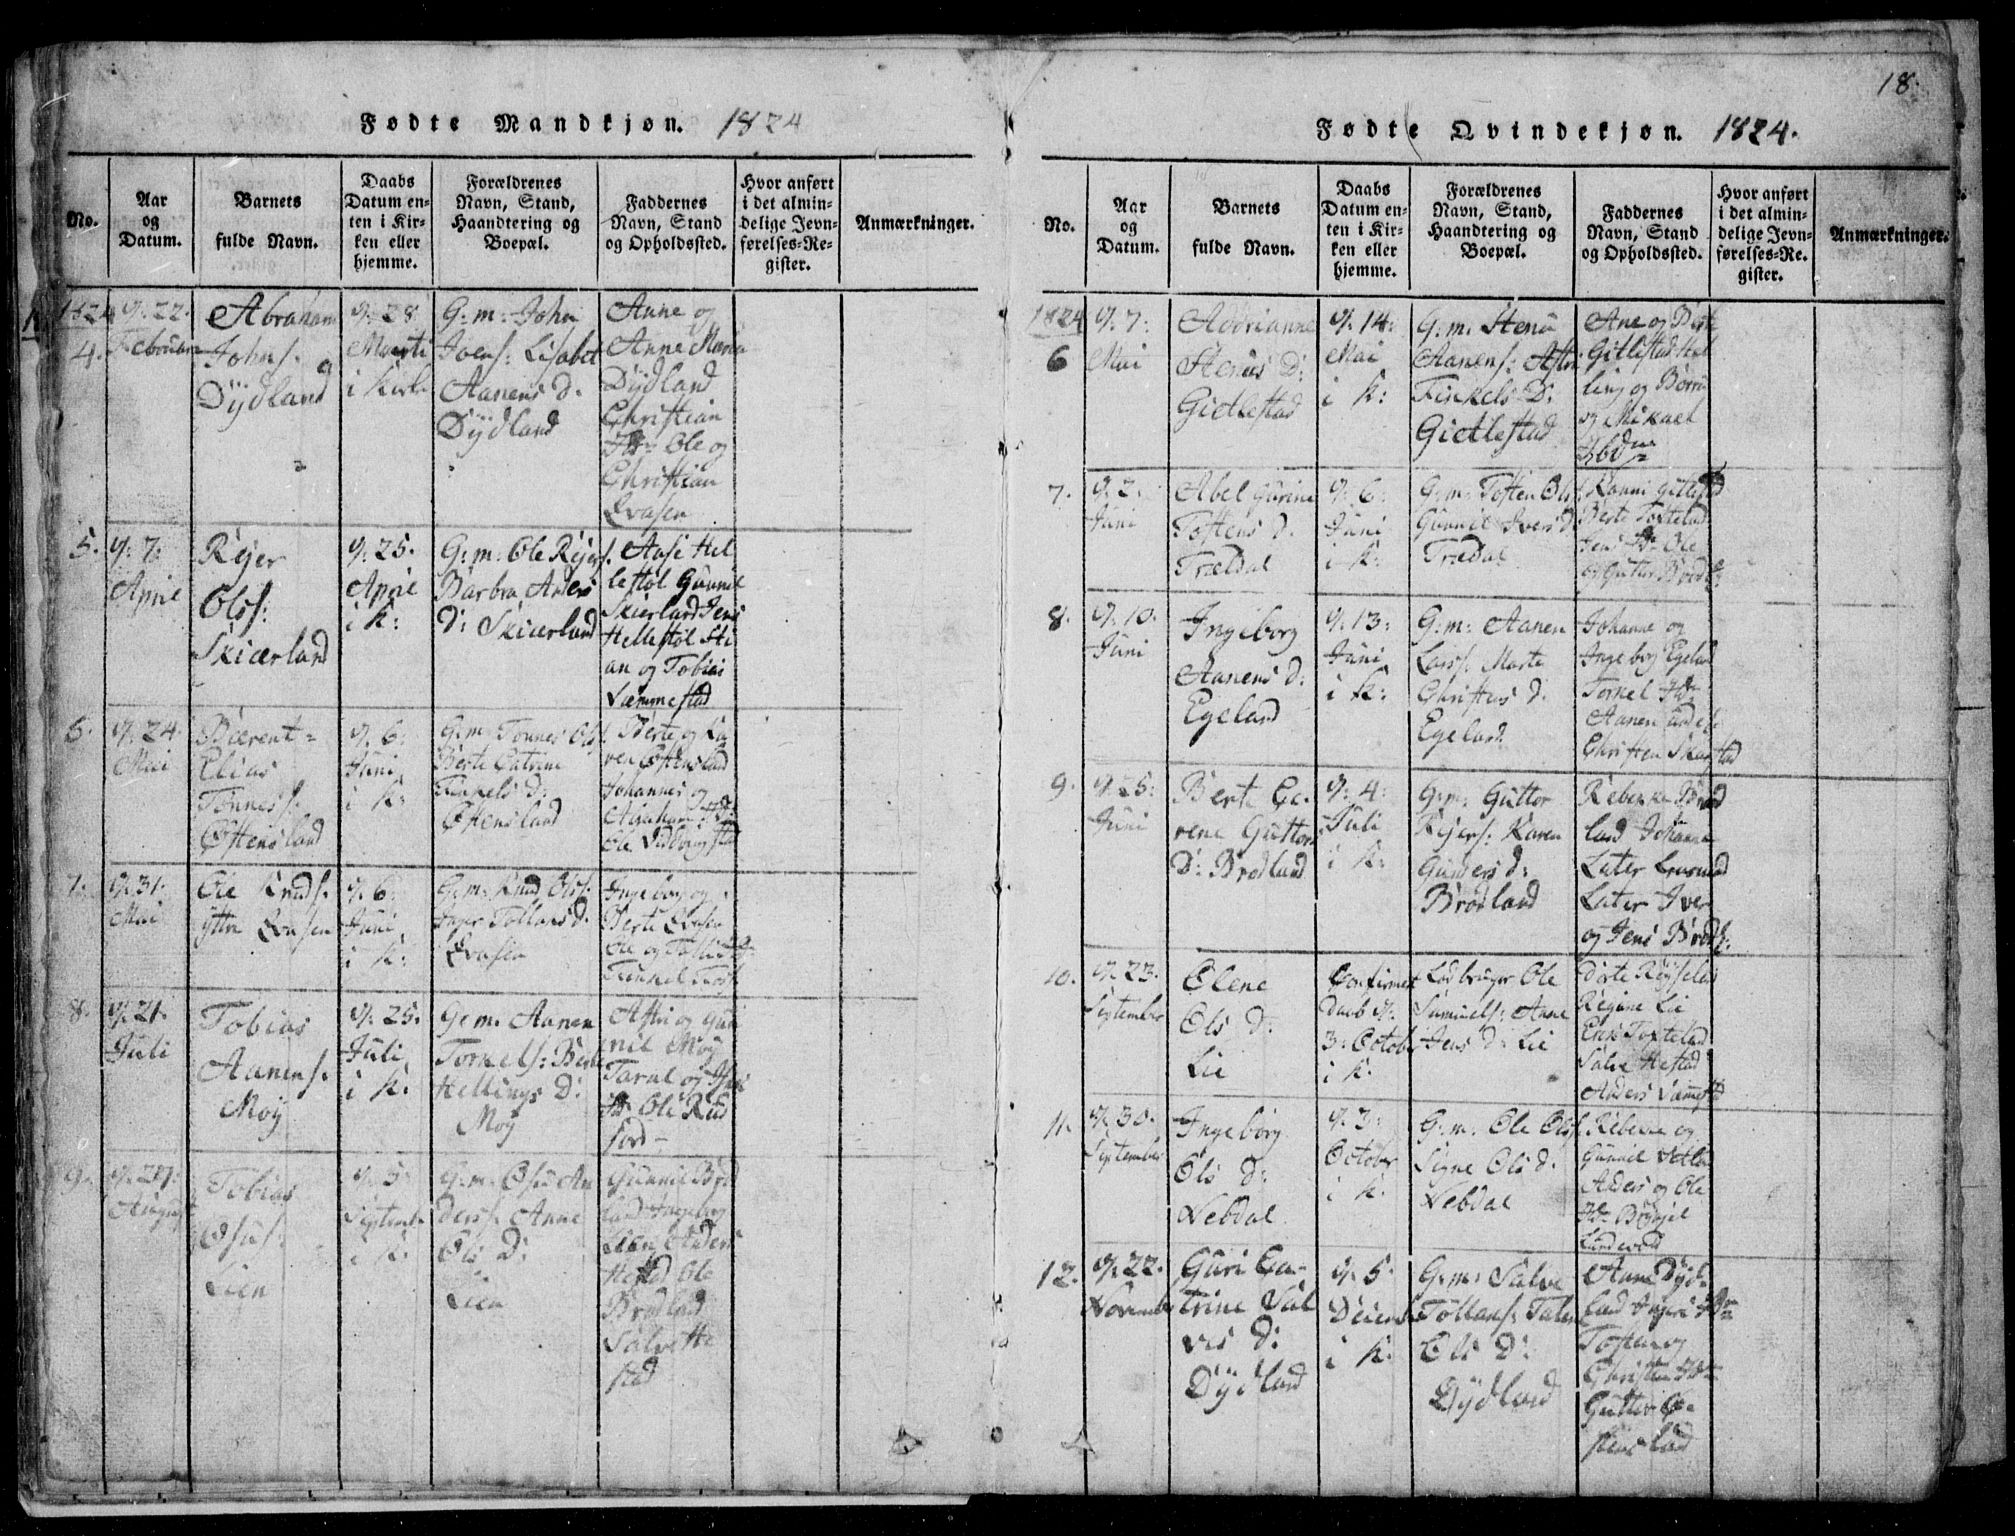 18.
Fødte Mandkjøn. 1824
No.
Aar
og
Datum.
Barnets
fulde Navn.
Daabs
Datum en-
ten i Kir-
ken eller
hjemme.
Forældrenes
Navn, Stand,
Haandtering og
Boepæl.
Faddernes
Navn, Stand
og Opholdssted.
Hvor anført
i det almin-
delige Jevn-
førelses-Re-
gister.
Anmærkninger.
1824
4.
22.
Februar
Abraham
Johns.
Dÿdland
28
Marti
i Kirke
G: m: John
Joens: Lisabet
Aanens d:
Dÿdland
Anne og
Anne Maria
Dÿdland
Christian
Ole og
Christian
Qvasen
5.
7:
April
Rejer
Ols:
Skierland
25.
April
i K:
G: m: Ole Rejers:
Barbra Anders
D: Skierland
Aase Hel
lestøl Gunnil
Skierland Jens
Hellestøl Sti
an og Tobias
Væmestad
6.
24.
Mai
Bærent
Elias
Tønnes:
Østensland
6.
Juni
i K:
G: m: Tønnes Ols:
Berte Catrine
Tinkels D:
Østensland
Berte og Ka
ren Østensland
Johannes og
Abraham
Ole
7.
31.
Mai
Ole Knuds:
ÿtre Qvasen
6.
Juni
i K:
G: m: Knud Ols:
Inger Tollans D.
Qvasen
Ingeborg og
Berte Qvasen
Ole og
8.
21.
Juli
Tobias
Aanens:
Moÿ
25.
Juli
i K:
G: m: Aanen
Torkels: Berte
Hellings D:
Moÿ
Astri og Gun
nil Moÿ
Taral og
Ole Rud
jord
9.
29.
August
Tobias
Osus:
Lien
5
Septemb
i K:
G: m: Osu An
ders: Anne
Ols D:
Lien
Gunnil Brød
land Ingeborg
Lien Anders
Hestad Ole
Brødland
Salve He
stad
Fødte Qvindekjøn. 1824.
No.
Aar
og
Datum.
Barnets
fulde Navn.
Daabs
Datum en-
ten i Kir-
ken eller
hjemme.
Forældrenes
Navn, Stand,
Haandtering og
Boepæl.
Faddernes
Navn, Stand
og Opholdssted.
Hvor anført
i det almin-
delige Jevn-
førelses-Re-
gister.
Anmærkninger.
1824
6
7:
Mai
Addrianne
Stenus D:
Gietlestad
14:
Mai
i K:
G: m: Stenu
Aanens: Astri
Tinkels D:
Gietlestad
Ane og Berte
Gitlestad Hel
ling og Børru
og Mikael
Ibdm
7.
2.
Juni
Abel Gurine
Tostens d.
Trældal
6.
Juni
i K:
G: m: Tosten Ols:
Gunnil Ivers d.
Trædal
Ranni Gitlestad
Berte Toxteland
Jens Ole
og Guttor Brødl:
8.
10.
Juni
Ingeborg
Aanens d:
Egeland
13:
Juni
i K:
G: m: Aanen
Lars: Marte
Christens d.
Egeland
Johanne og
Ingeborg Egeland
Torkel
Aanen
Christen
9.
25.
Juni
Berte Ca-
rene Guttors
D: Brødland
4:
Juli
i K:
G: m: Guttor
Rejers: Karen
Gunders d:
Brødland
Rebekke Brød
land Johanne
Later
Later Iver
og Jens Brødl:
10.
23.
September
Olene
Ols D:
Lie
Confirmert
Daab
3: October
i K.
Ladbruger Ole
Samuels: Anne
Jens D: Lie
Dorte Røÿseland
Regine Lie
Erik Toxteland
Salve Hestad
Anders Væmestad
11.
30.
September
Ingeborg
Ols D:
Nebdal
3:
October
i K.
G: m: Ole Ols:
Signe Ols D.
Nebdal
Rebekke og
Gunnil
Anders og Ole
Lindevold
12.
22.
November
Guri Ca-
trine Sal
ves D:
Dÿdland
5.
December
i K:
G: m: Salve
Tollans: Talette
Ols D:
Dÿdland
Anne Dÿd-
land Ingeri
Tosten og
Christian
Guttor Ø-
stensland